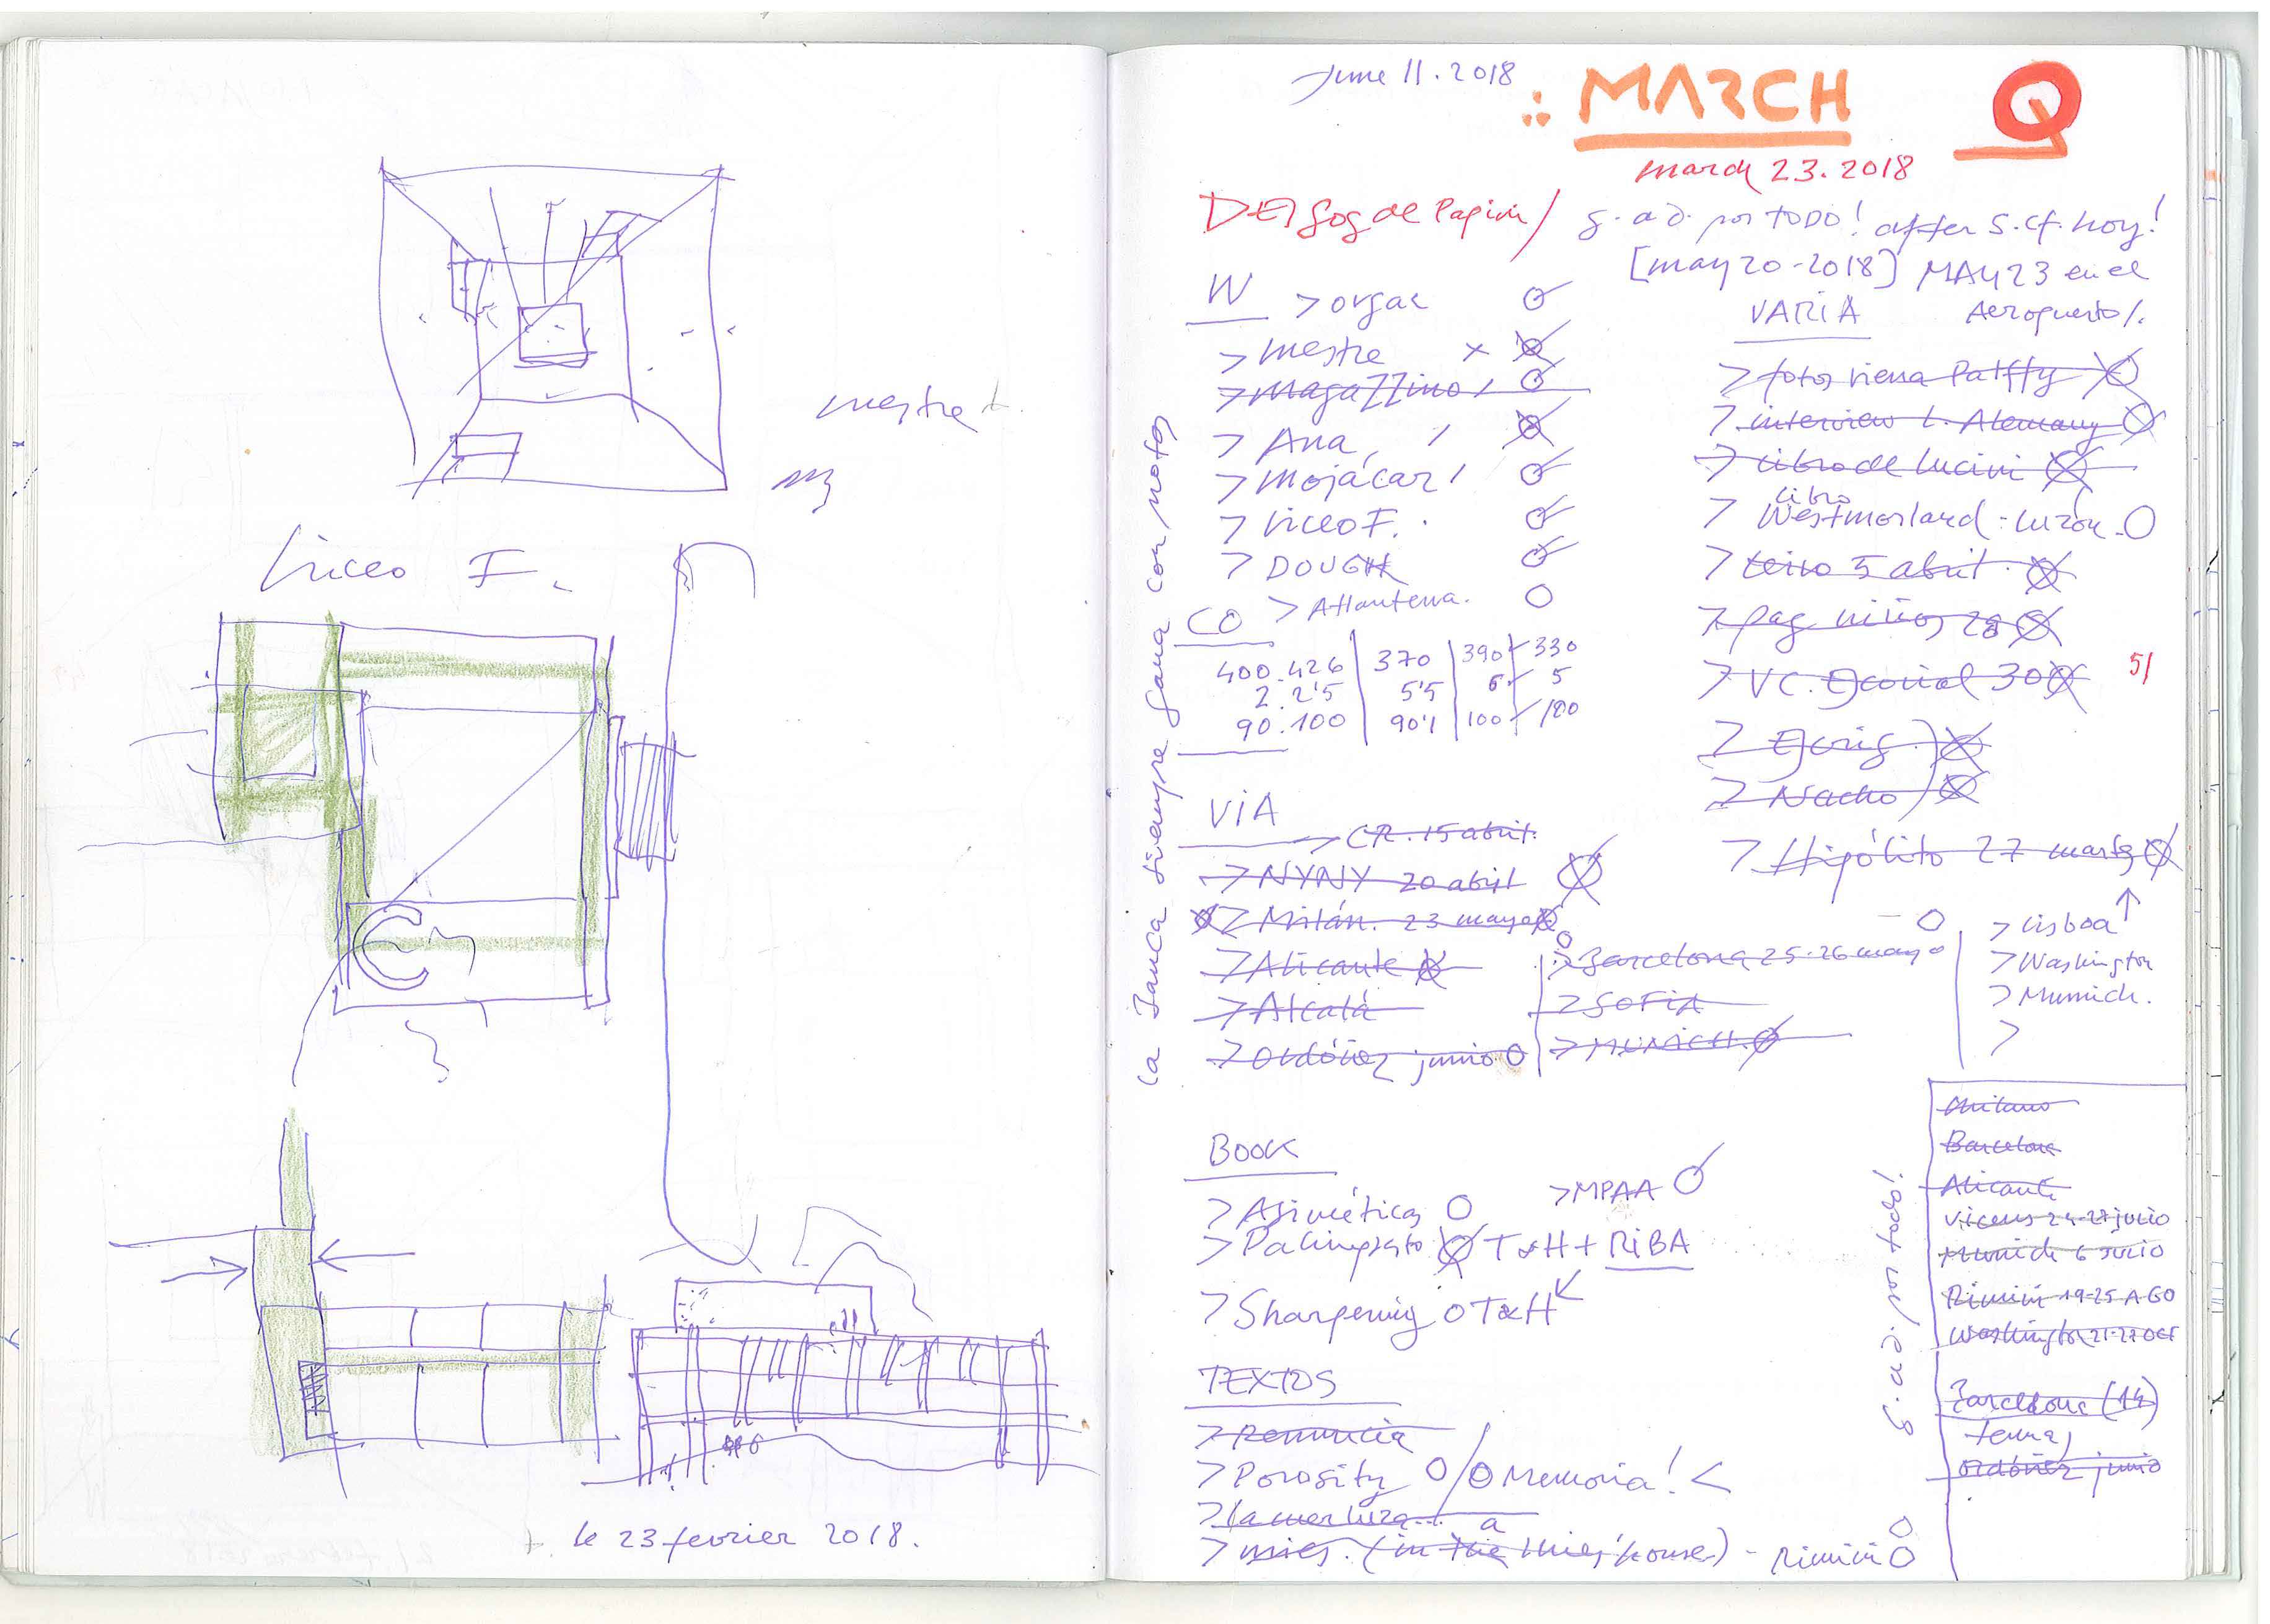 mestre
Liceo F.
le 23 fevrier 2018.
June 11. 2018
MARCH
Q
march 23. 2018
Gog de Papini /
g. a d. por TODO! after s. cf. hoy!
[may 20-2018] MAY 23 en el
Aeropuerto /.
W
> orgac
> mestre x
> magazzino /
> Ana /
> Mojácar /
> Liceo F.
> DOUGH
> Atlanterra.
CO
400.426 | 370 | 390 / 330
2. 2'5 | 5'5 | 6 / 5
90.100 | 90'1 | 100 / 100
VARIA
> fotos Viena Palffy
> interview L. Alemany
> libro de Lucini
> libro Westmorland: Luzón
> 5 abril
> pag. niños 28
> VC. Escorial 30
5/
> Nacho
> Hipólito 27 marzo
la Banca siempre gana con notas
VIA
> CR. 15 abril.
> NYNY 20 abril
> Milán. 23 mayo
> Alicante
> Alcalá
> Ordóñez junio
> Barcelona 25-26 mayo
> SOFIA
> MUNICH.
> Lisboa
> Washington
> Munich.
>
BOOK
> Asiméticas
> MPAA
> Palimpsesto T&H + RIBA
> Sharpening T&H
TEXTOS
> Renuncia
> Porosity / Memoria! <
> La merluza...
> mies. (in the mies' house) - Rimini
a
g. a d. por todo!
Milano
Barcelona
Alicante
Vicens 24-27 julio
Munich 6 Julio
Rimini 19-25 AGO
Washington 21-27 OCT
Barcelona (14)
Ordóñez junio